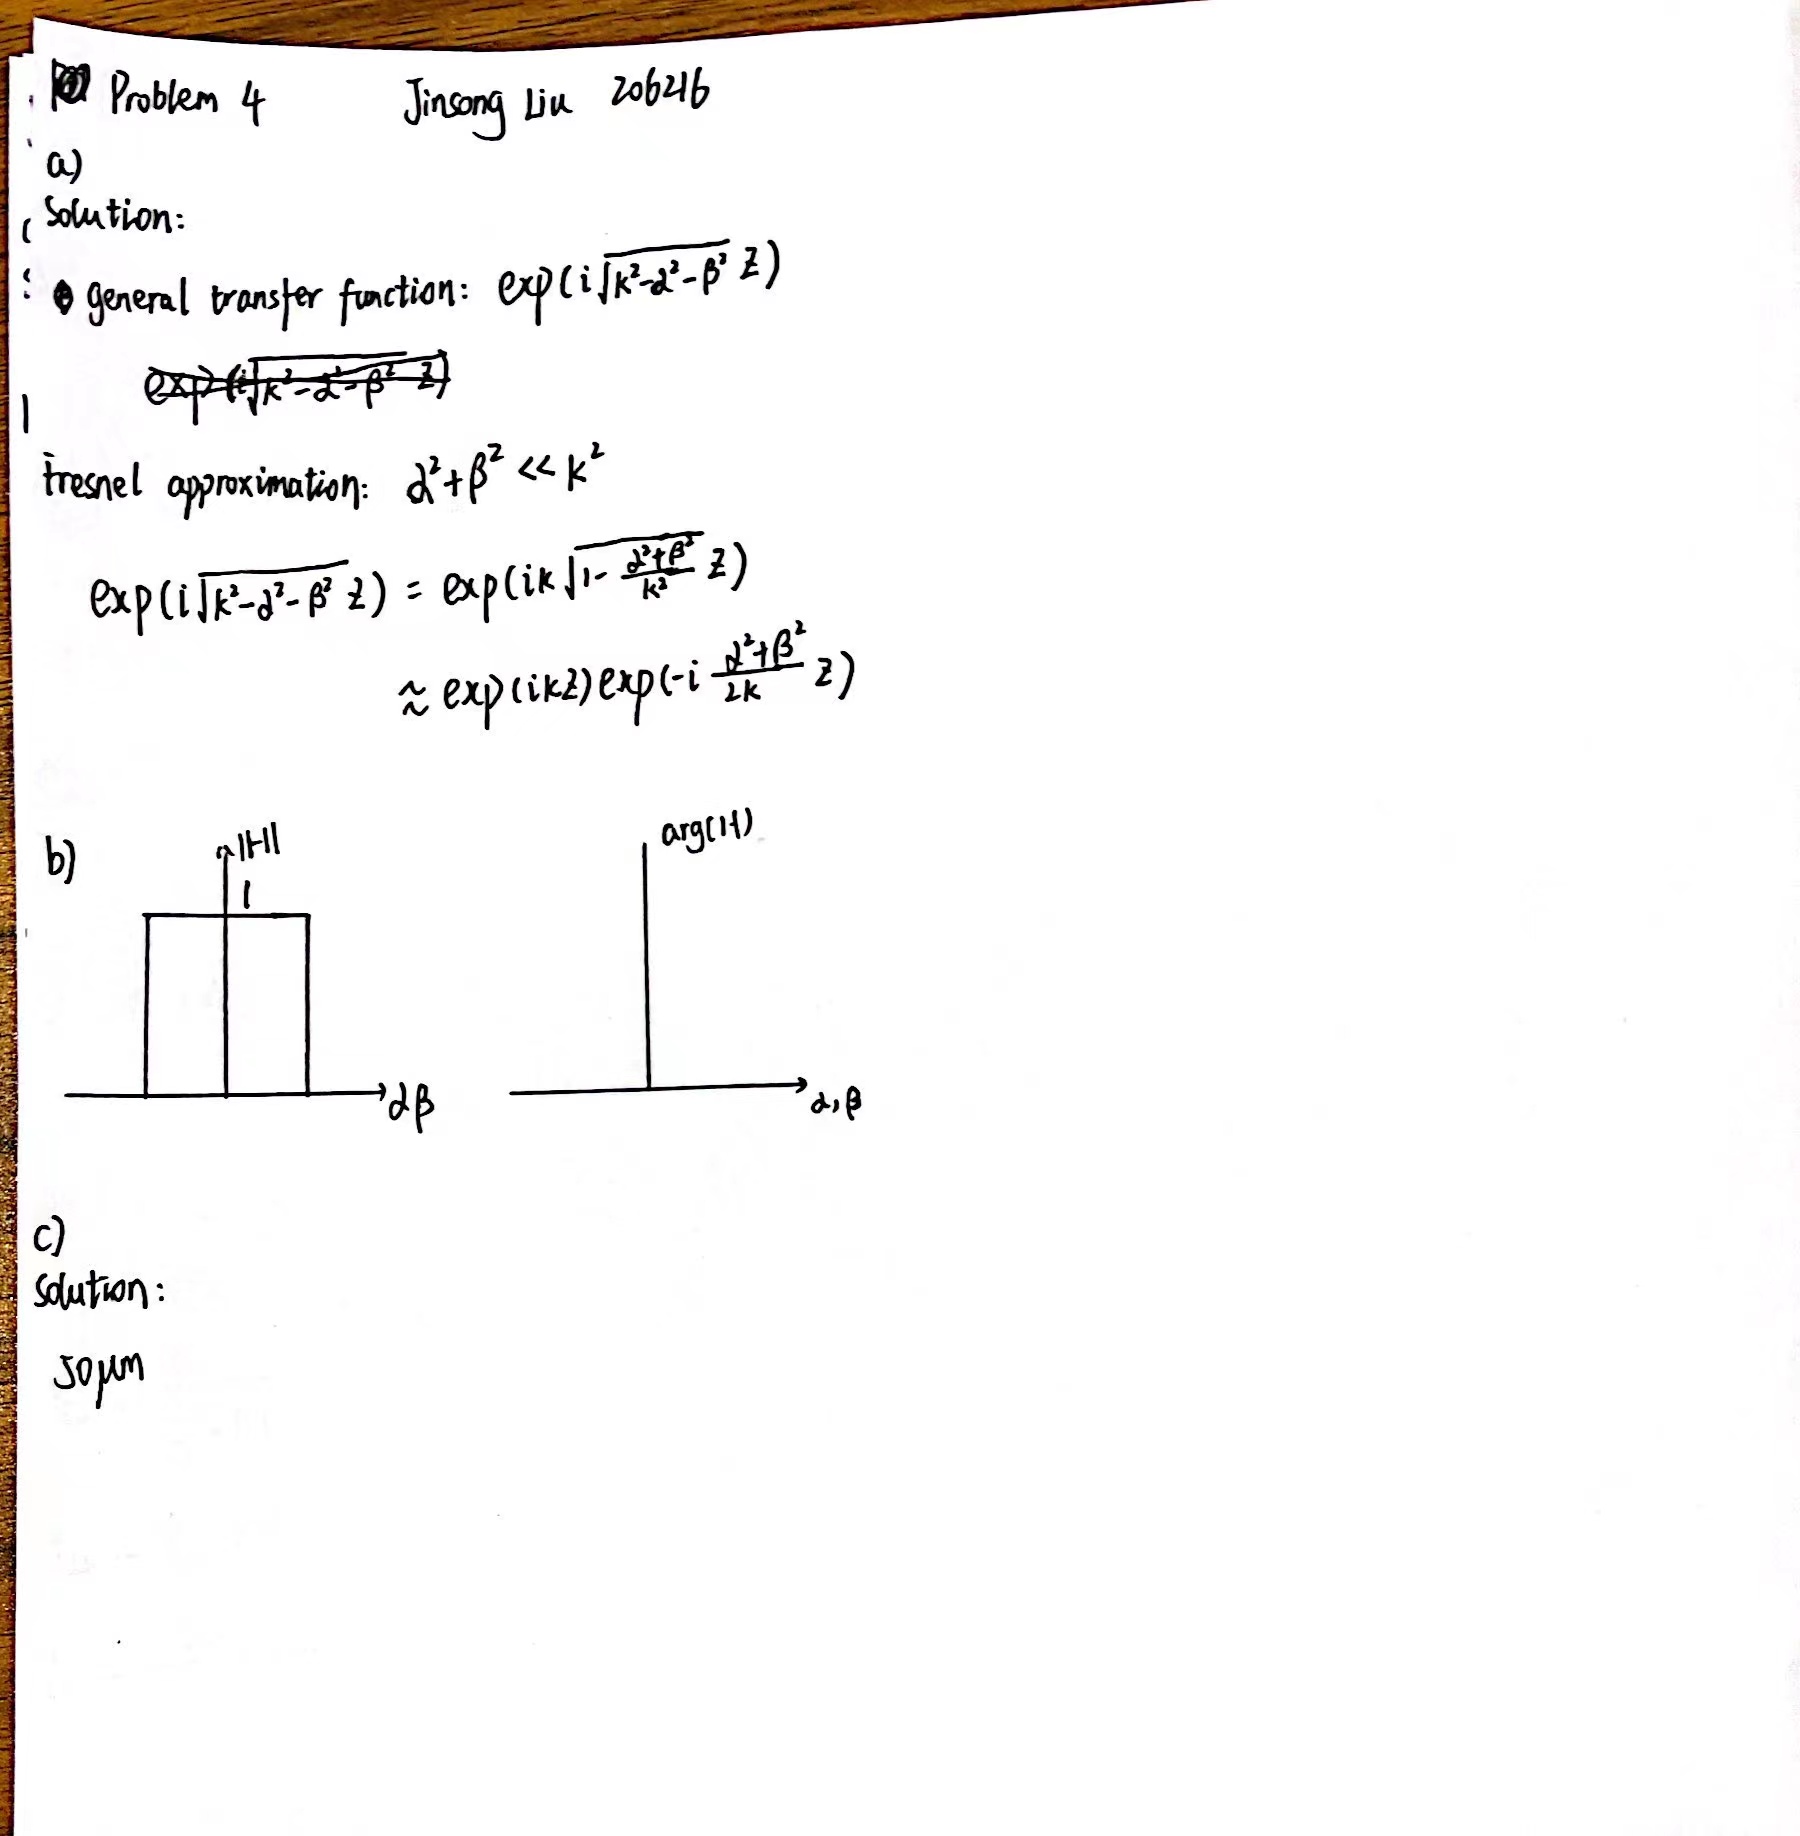 Problem 4 Jinsong Liu 206216
a)
Solution:
general transfer function: exp(i√(k²-α²-β²) z)
exp(i√(k²-α²-β²) z)
Fresnel approximation: α²+β² << k²
exp(i√(k²-α²-β²) z) = exp(ik√(1-(α²+β²)/k²) z)
≈ exp(ikz) exp(-i (α²+β²)/2k z)
b) |H| arg(H)
1
αβ α,β
c)
Solution:
50μm